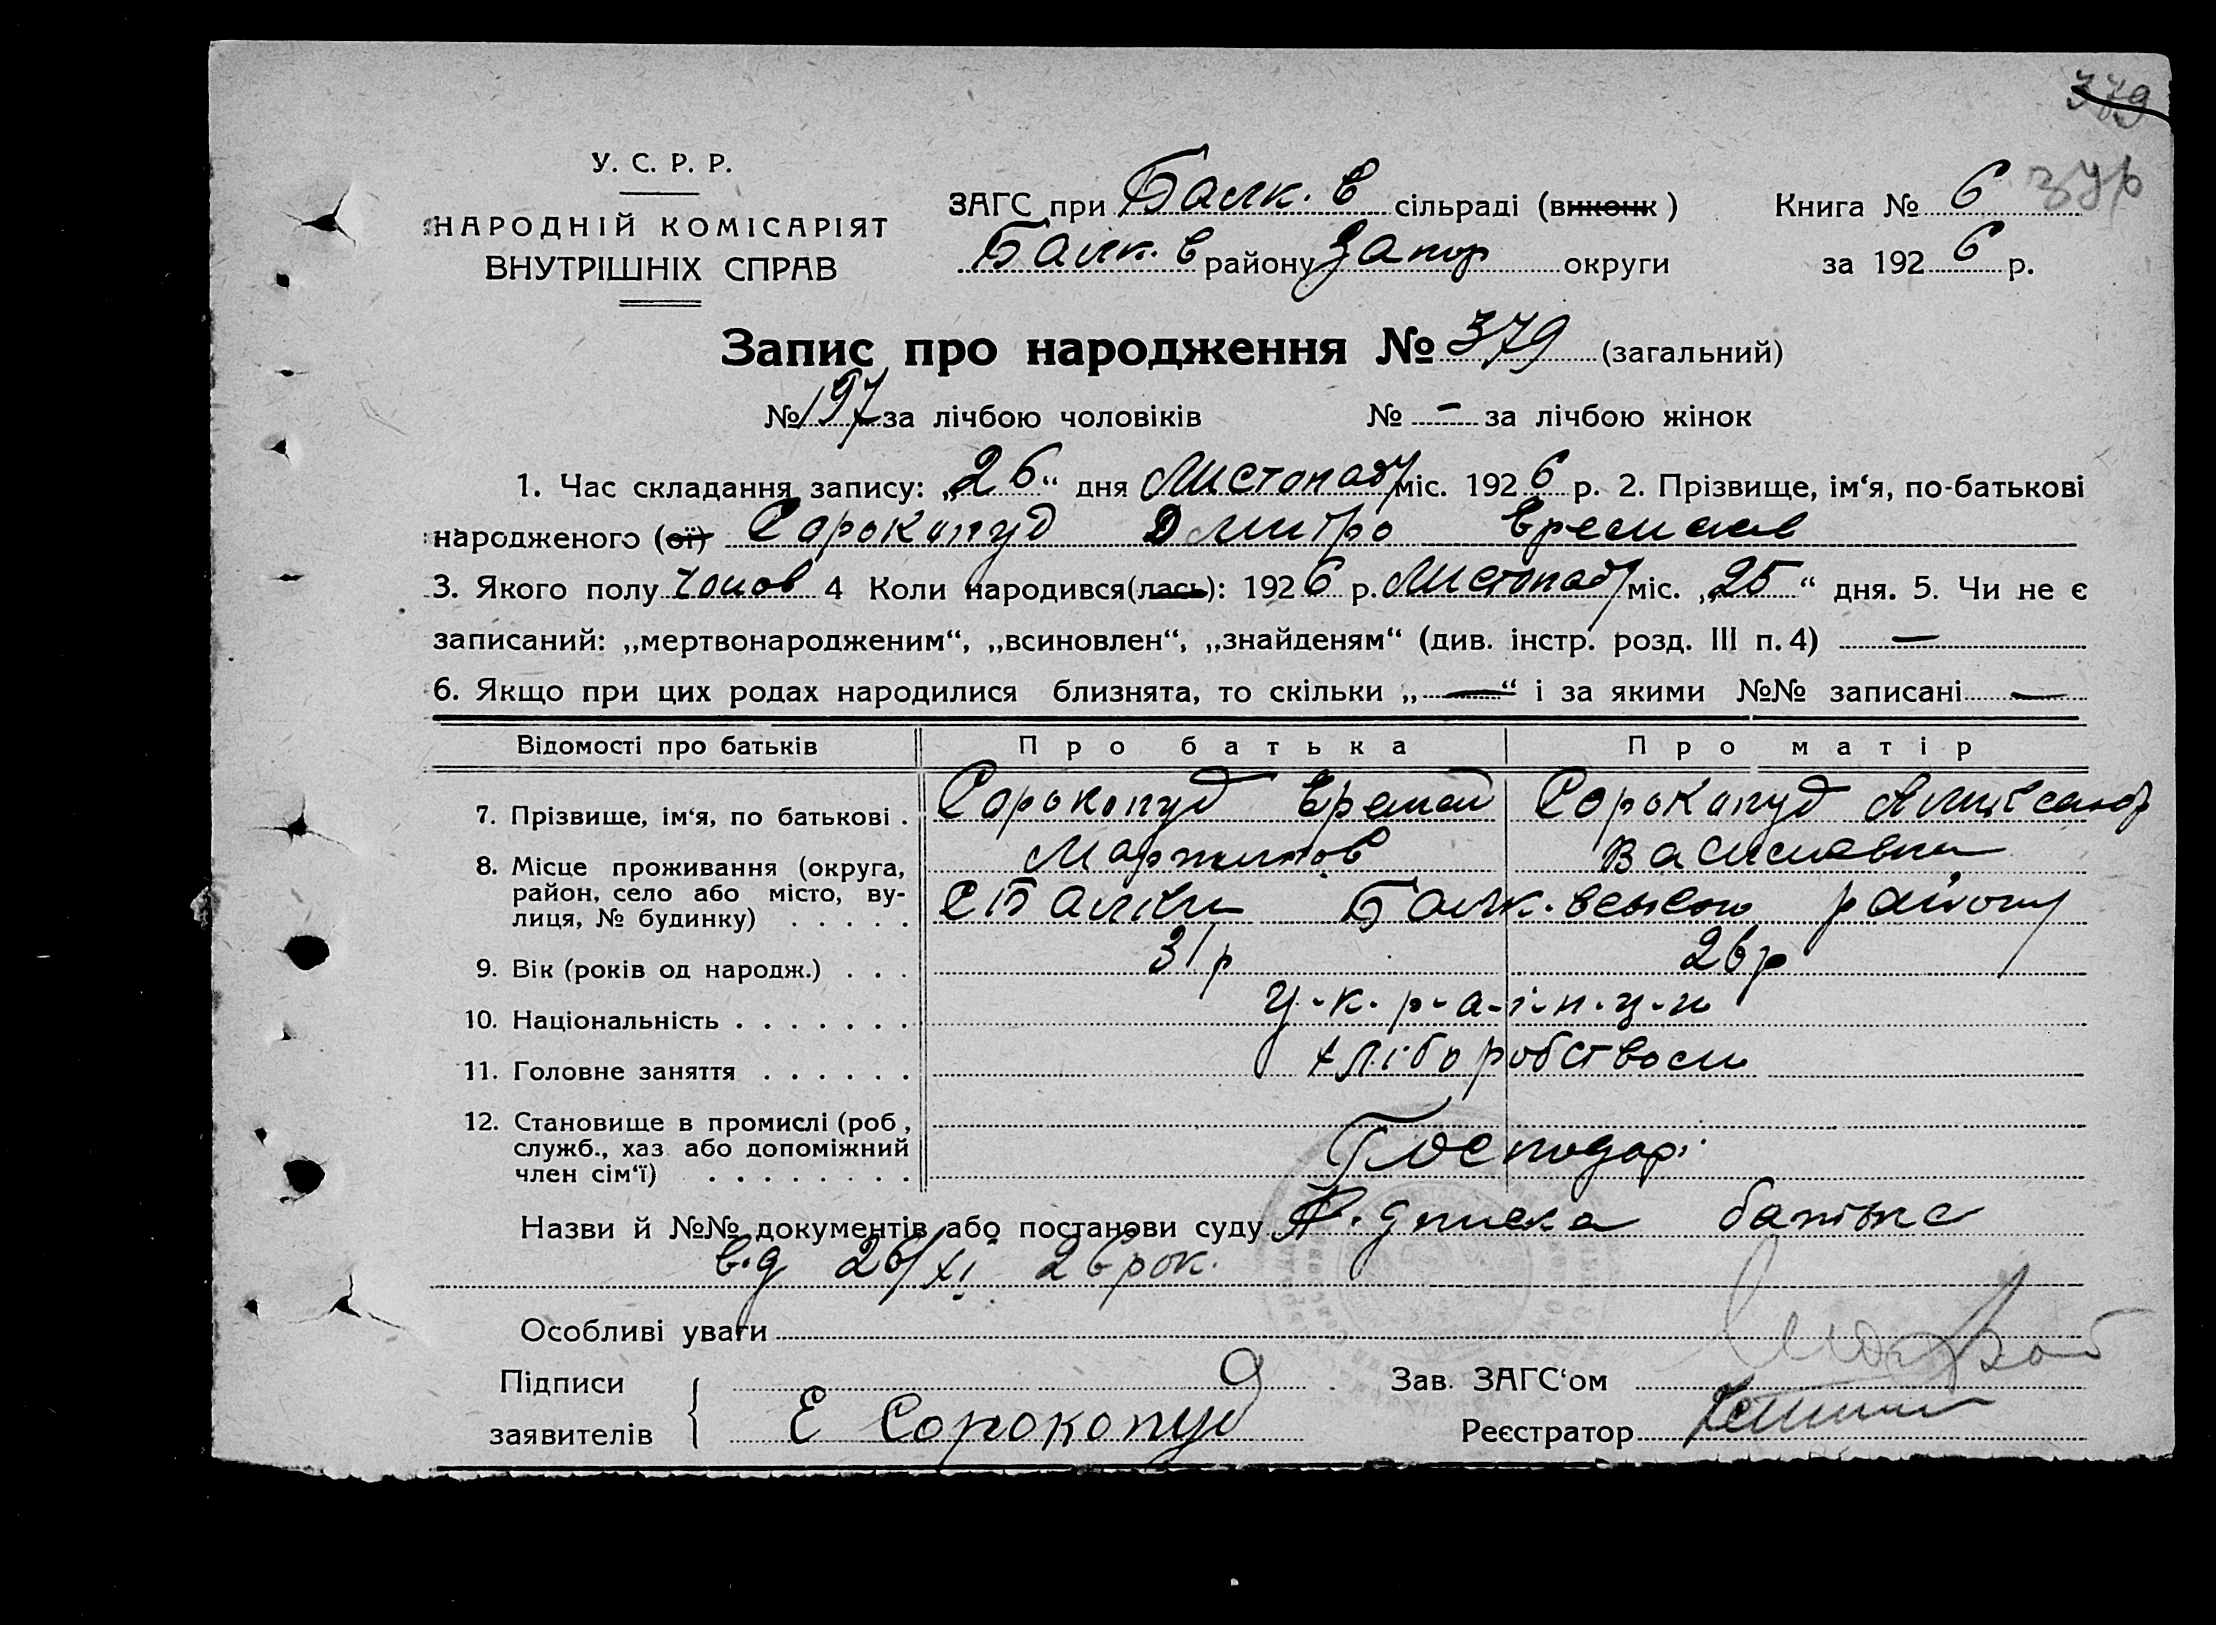 379
У. С. Р. Р.
НАРОДНІЙ КОМІСАРІЯТ
ВНУТРІШНІХ СПРАВ
ЗАГС при Балк. в сільраді (виконк)
Балк. в району Запор округи
Книга № 6
за 192 6 р.
Запис про народження № 379 (загальний)
№ 197 за лічбою чоловіків № – за лічбою жінок
1. Час складання запису: „26“ дня Листопад міс. 192 6 р. 2. Прізвище, ім‘я, по-батькові
народженого (ої) Сорокопуд Дмитро Еремеев
3. Якого полу Чолов 4 Коли народився(лась): 192 6 р. Листопад міс. „25“ дня. 5. Чи не є
записаний: „мертвонародженим“, „всиновлен“, „знайденям“ (див. інстр. розд. III п. 4) —
6. Якщо при цих родах народилися близнята, то скільки „—“ і за якими №№ записані —
Відомості про батьків Про батька Про матір
7. Прізвище, ім‘я, по батькові . Сорокопуд Еремей Сорокопуд Александр
Мартинов Василевна
8. Місце проживання (округа,
район, село або місто, ву-
лиця, № будинку) . . . . . С Балки Балк. району
9. Вік (років од народж.) . . . 31 р 26 р
10. Національність . . . . . . . У-к-р-а-ї-н-ц-и
11. Головне заняття . . . . . . хліборобством
12. Становище в промислі (роб,
служб., хаз або допоміжний
член сім‘ї) . . . . . . . . Господарі
Назви й №№ документів або постанови суду батька
від 26/XI 26 рок.
Особливі уваги
Підписи
заявителів
Е Сорокопуд
Зав. ЗАГС‘ом
Реєстратор